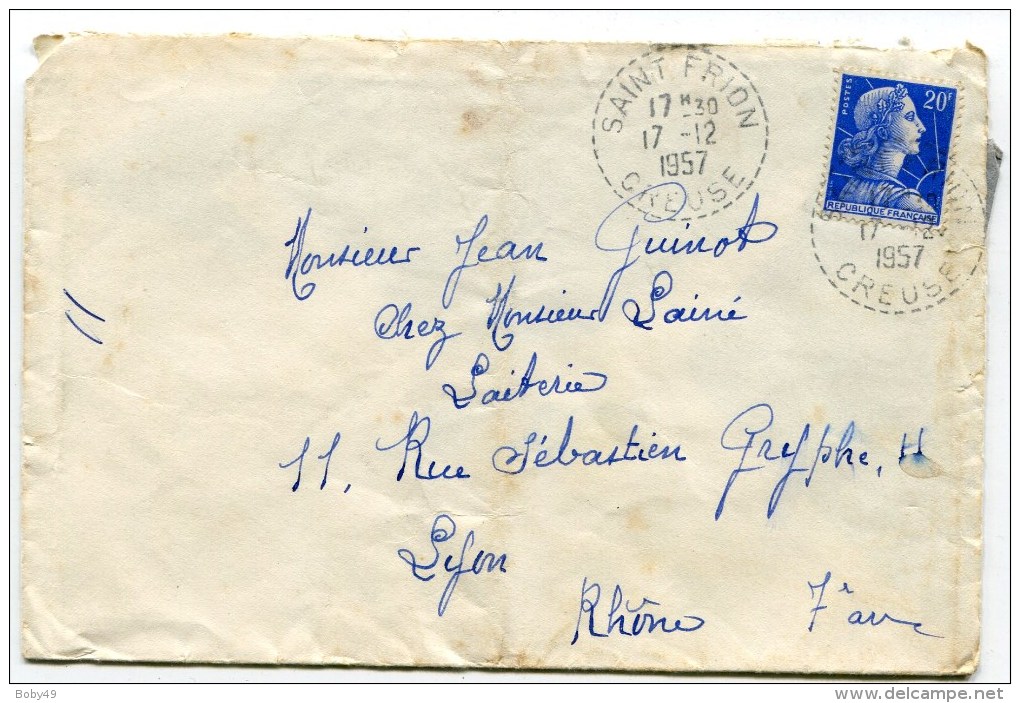 SAINT FRION
17H30
17-12
1957
CREUSE
POSTES
20F
REPUBLIQUE FRANÇAISE
17 -12
1957
CREUSE
Monsieur Jean Guinot
Chez Monsieur Lainé
Laiterie
11, Rue Sébastien Gryphe, 11
Lyon
Rhône 7e arr
11
Boby49
www.delcampe.net